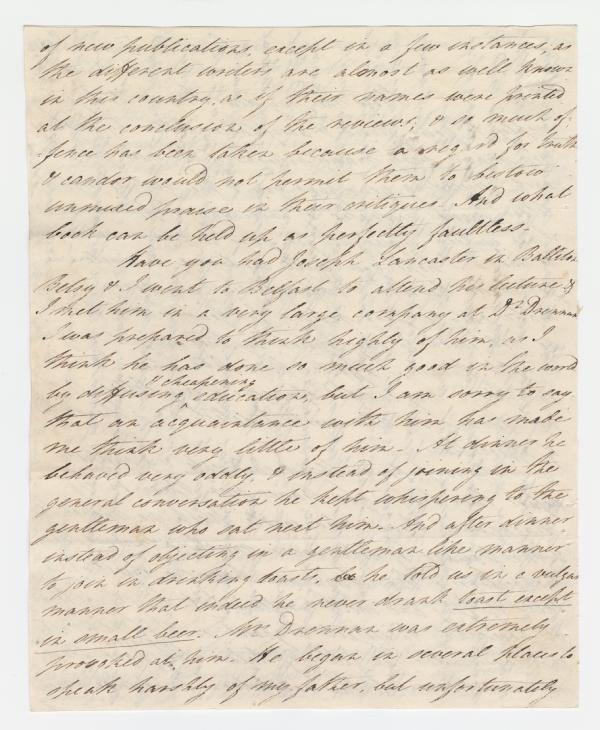 of new publications, except in a few instances, as
the different writers are almost as well known
in this country, as if their names were printed
at the conclusion of the reviews, & so much of-
-fence has been taken because a regard for truth
& candor would not permit them to bestow
unmixed praise in their critiques. And what
book can be held up as perfectly faultless.
Have you had Joseph Lancaster in
Betsy & I went to Belfast to attend his lecture &
I met him in a very large company at Dr. Drennan
I was prepared to think highly of him, as I
think he has done so much good in the world
& cheapening
by diffusing education, but I am sorry to say
that an acquaintance with him has made
me think very little of him. At dinner he
behaved very oddly, & instead of joining in the
general conversation he kept whispering to the
gentleman who sat next him. And after dinner
instead of objecting in a gentleman like manner
to join in drinking toasts, he told us in a vulgar
manner that indeed he never drank toast except
in small beer. Mrs. Drennan was extremely
provoked at him. He began in several places to
speak harshly of my father, but unfortunately